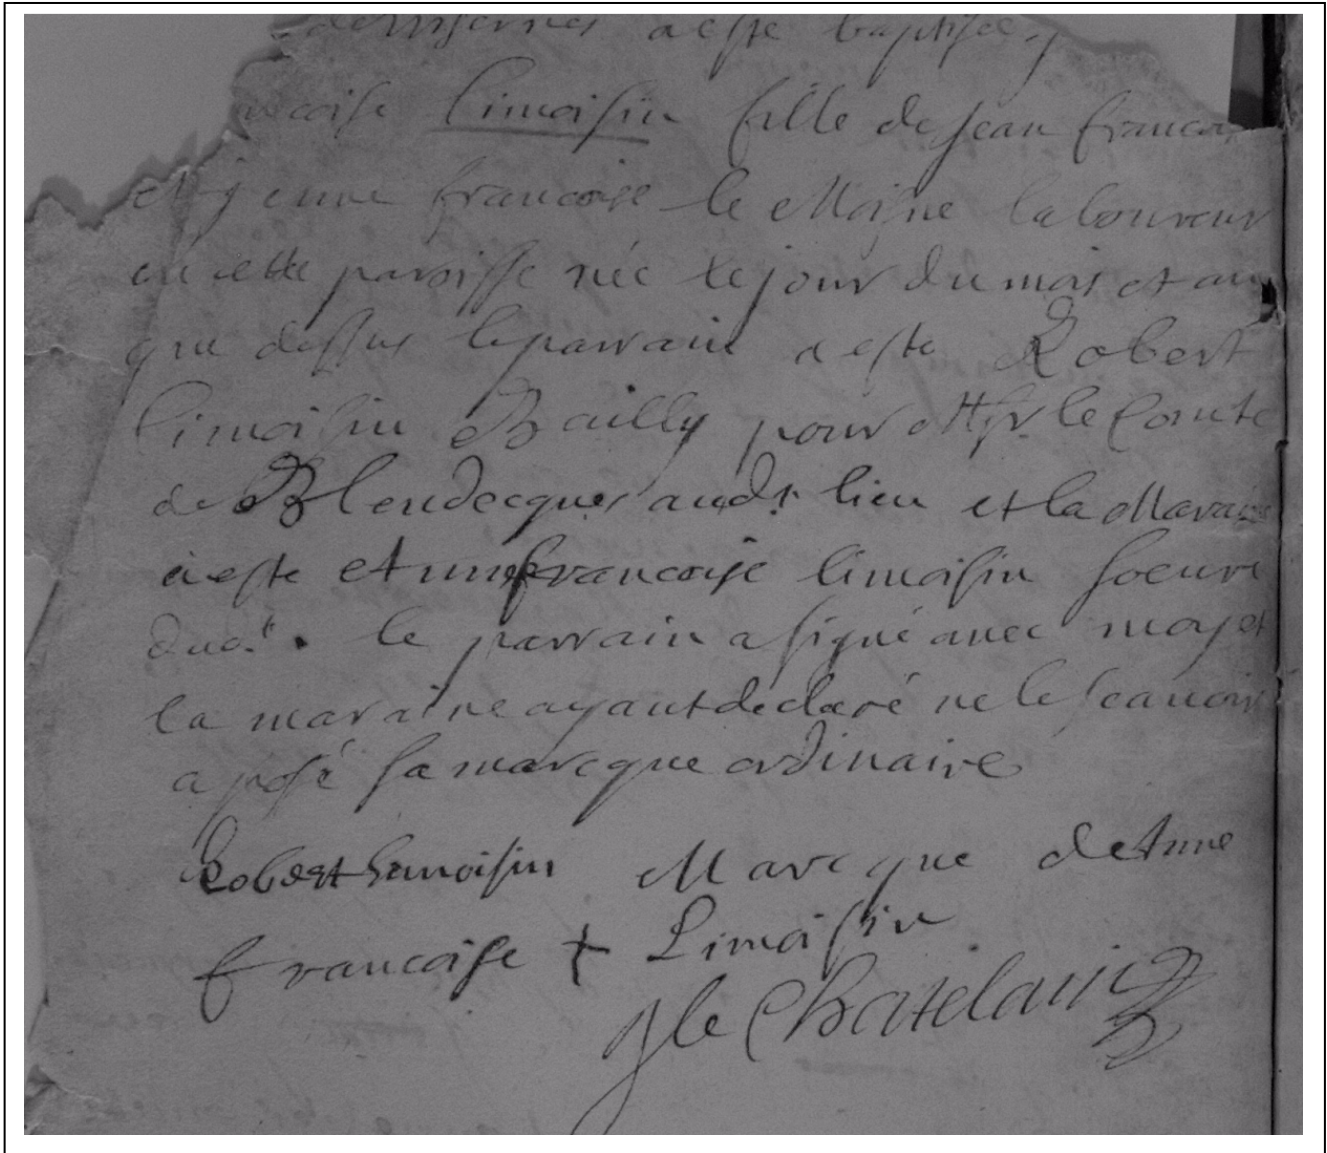 a este baptisée
limoisin fille de Jean francoi
et jenne francoise le Moisne laboureur
en cette paroisse née le jour du mois et an
que dessus le parrain a este Robert
limoisin Bailly pour Mgr. le Comte
de Blendecques audt. lieu et la Marai
a este Anne francoise limoisin soeure
dudt. le parrain a signé avec moy et
la maraine ayant declaré ne le scauoir
a posé sa marcque ordinaire
Robert Limoisin Marcque de Anne
francoise + Limoisin
J le Chatelain